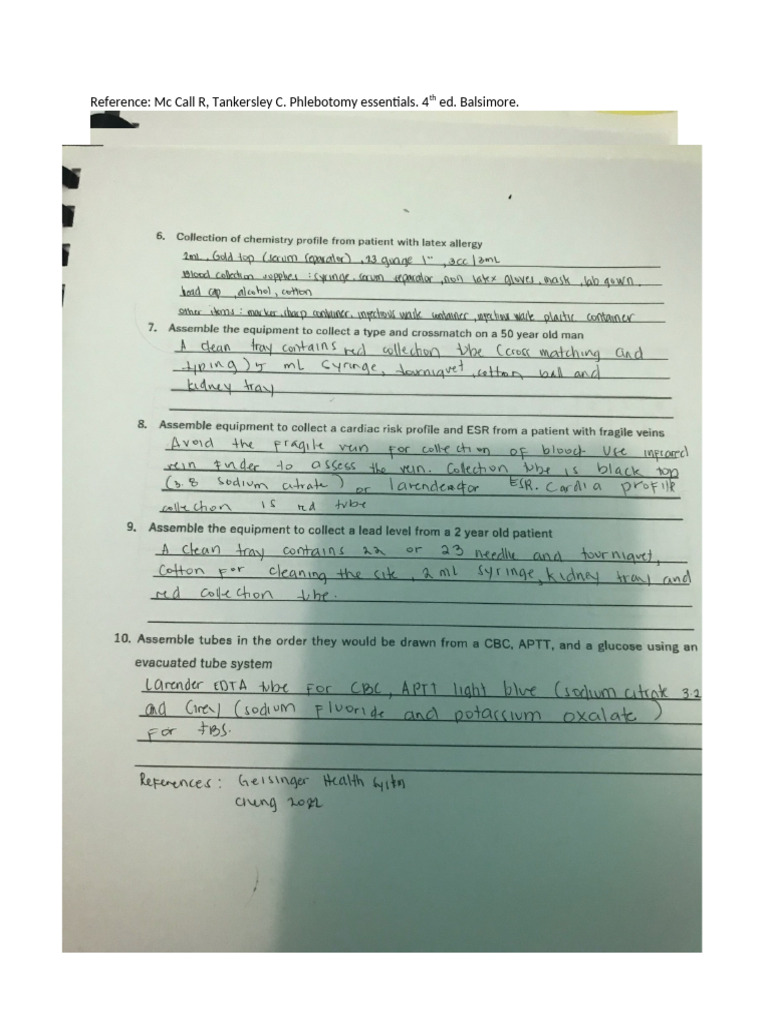 Reference: Mc Call R, Tankersley C. Phlebotomy essentials. 4th ed. Balsimore.
6. Collection of chemistry profile from patient with latex allergy
2mL, Gold top (serum separator), 23 guage 1", 3cc/3mL
Blood collection supplies : syringe, serum separator, non latex gloves, mask, lab gown,
head cap, alcohol, cotton
other items : marker, sharp container, injectious waste container, injectious waste plastic container
7. Assemble the equipment to collect a type and crossmatch on a 50 year old man
A clean tray contains red collection tube (cross matching and
typing) 5 mL syringe, tourniquet, cotton ball and
kidney tray
8. Assemble equipment to collect a cardiac risk profile and ESR from a patient with fragile veins
Avoid the fragile vein for collection of blood. Use infrared
vein finder to assess the vein. Collection tube is black top
(3.8 sodium citrate) or lavender for ESR. Cardia profile
collection is red tube
9. Assemble the equipment to collect a lead level from a 2 year old patient
A clean tray contains 22 or 23 needle and tourniquet,
cotton for cleaning the site, 2 ml syringe, kidney tray and
red collection tube.
10. Assemble tubes in the order they would be drawn from a CBC, APTT, and a glucose using an
evacuated tube system
Lavender EDTA tube for CBC, APTT light blue (sodium citrate 3.2
and Grey (sodium fluoride and potassium oxalate)
for FBS.
References : Geisinger Health System
Cheng